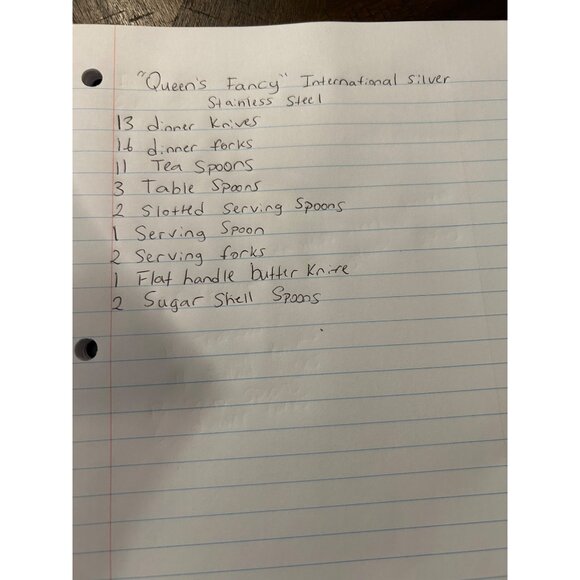 "Queen's Fancy" International Silver
Stainless Steel
13 dinner Knives
16 dinner forks
11 Tea Spoons
3 Table Spoons
2 Slotted Serving Spoons
1 Serving Spoon
2 Serving forks
1 Flat handle butter Knife
2 Sugar Shell Spoons